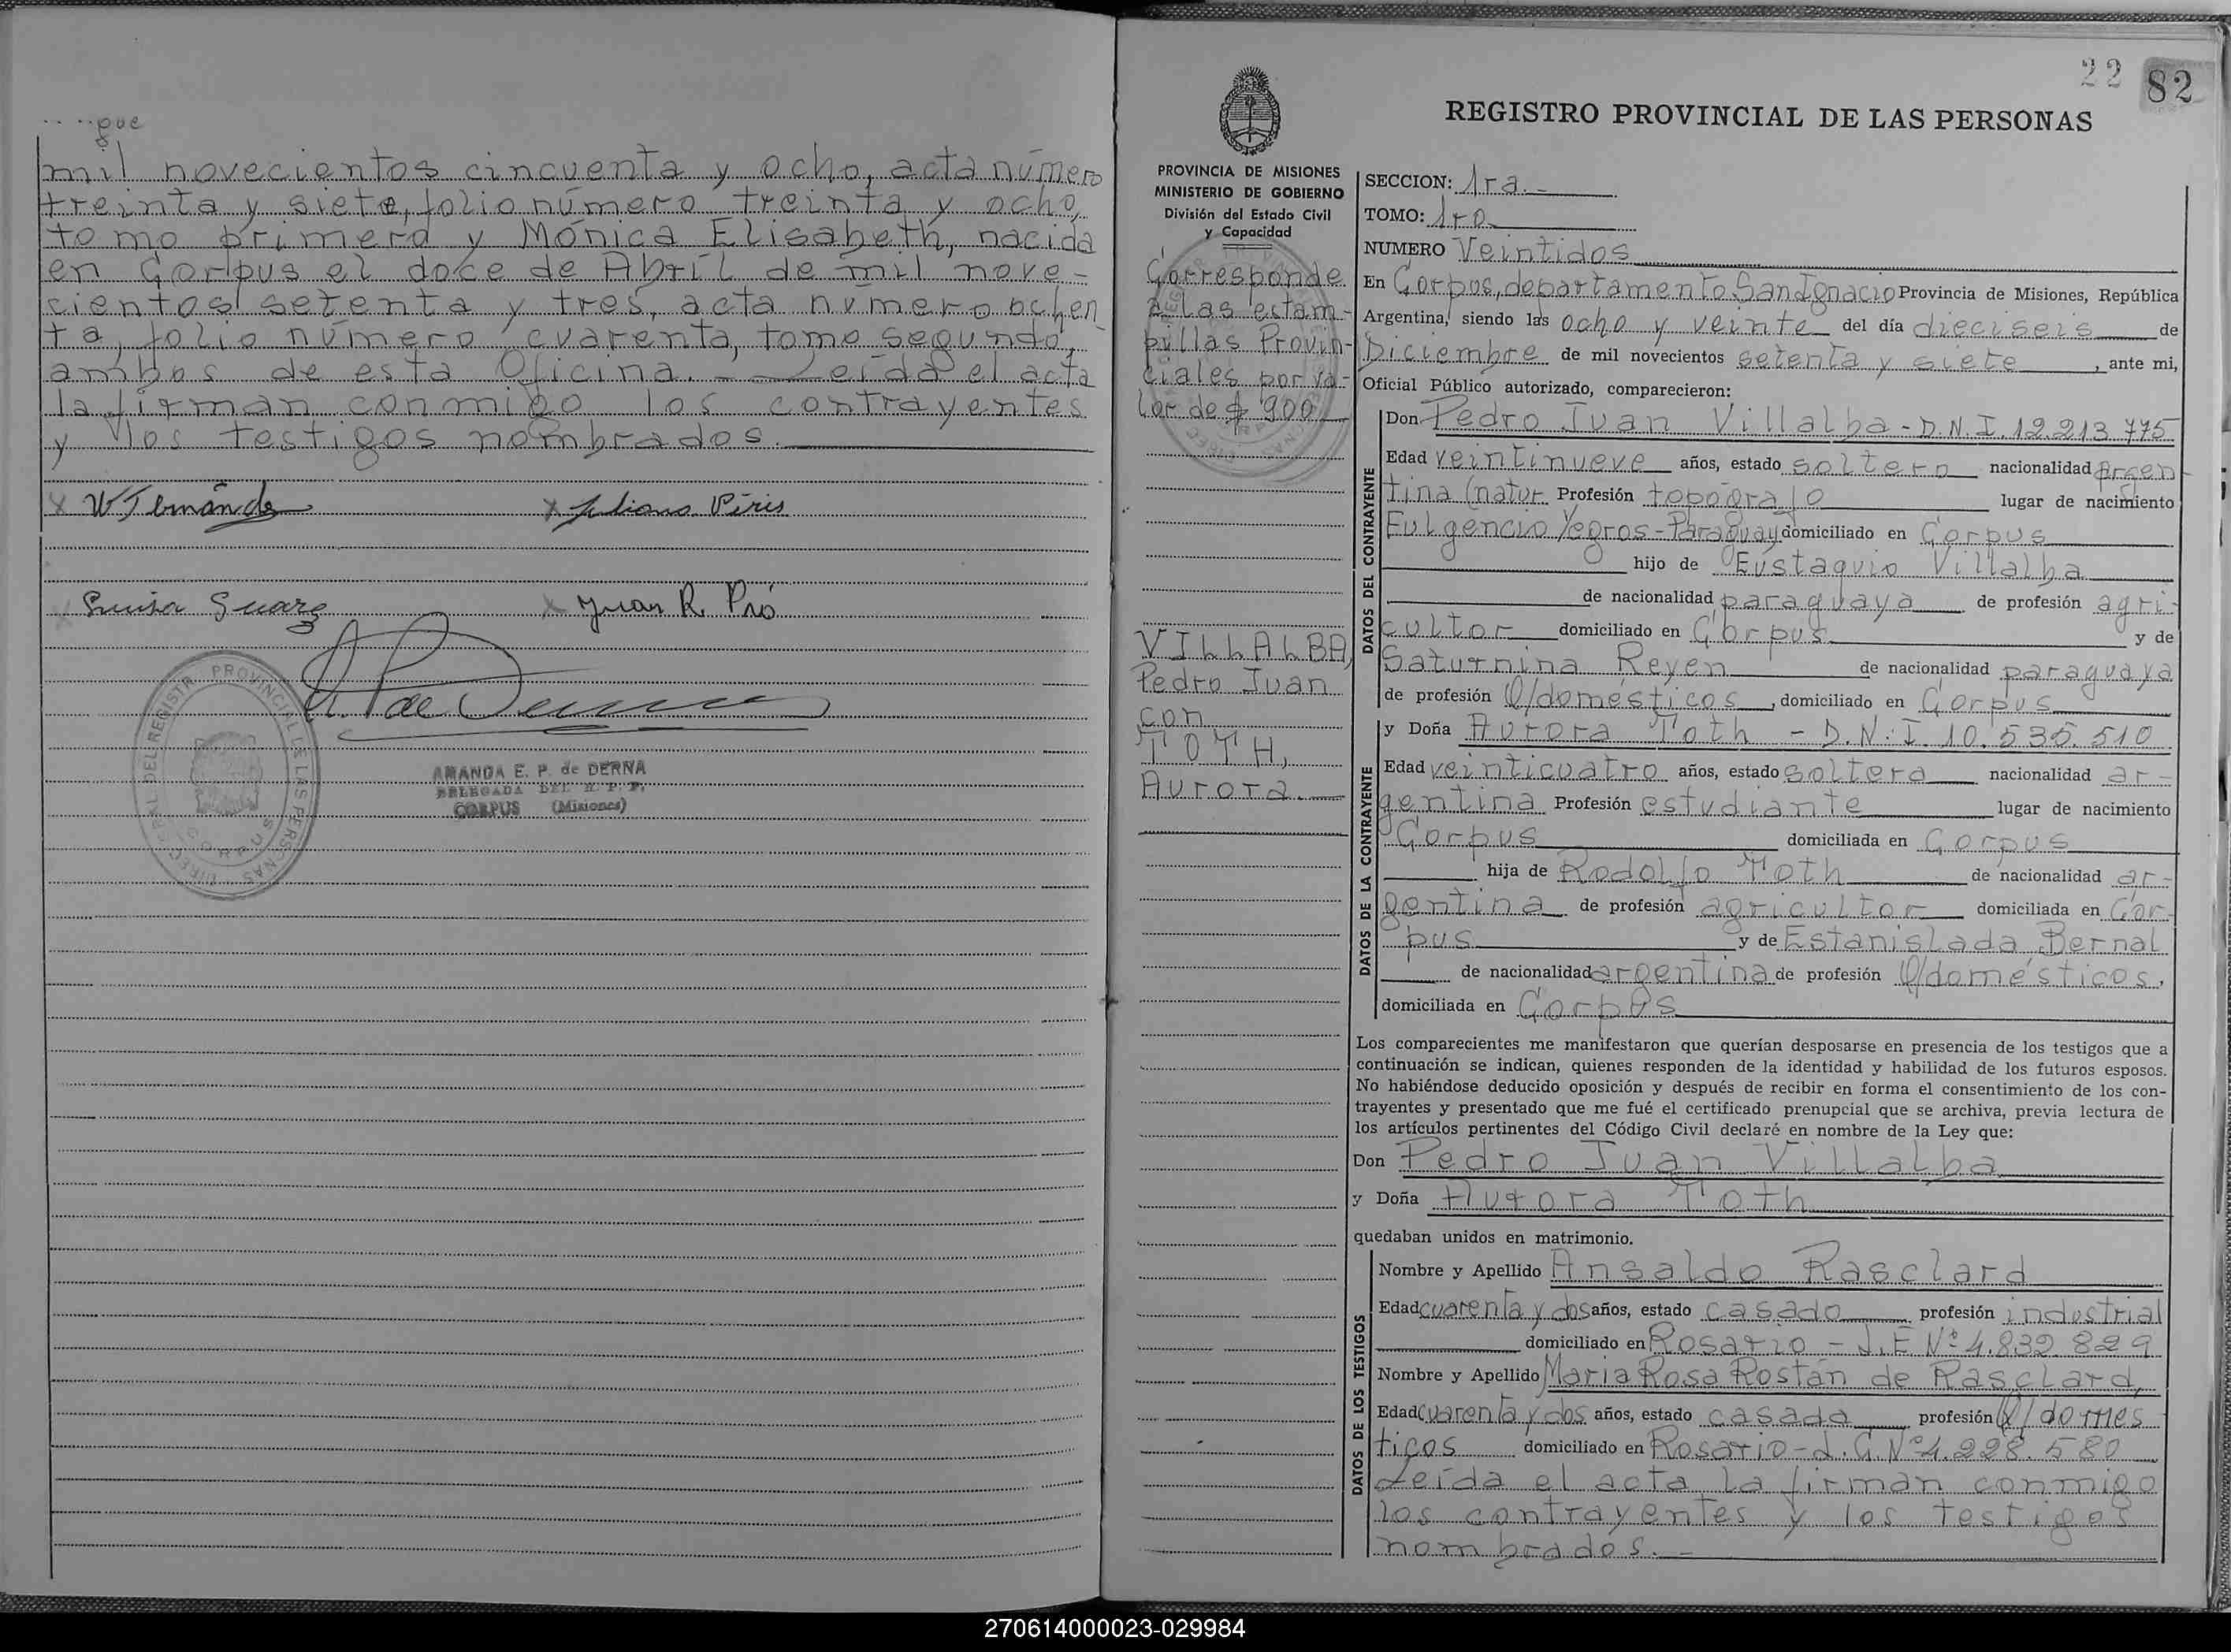 ....gue
mil novecientos cincuenta y ocho, acta número
treinta y siete, folio número treinta y ocho,
tomo primero y Mónica Elisabeth, nacida
en Corpus el doce de Abril de mil nove-
cientos setenta y tres, acta número ochen
ta, folio número cuarenta, tomo segundo,
ambos de esta Oficina.- Leída el acta
la firman conmigo los contrayentes
y los testigos nombrados.
Juan R. Pró
DIREC. GRAL. DEL REGISTR. PROVINCIAL DE LAS PERSONAS
CORPUS
AMANDA E. P. de DERNA
DELEGADA DEL R. P. P.
CORPUS (Misiones)
22 82
REGISTRO PROVINCIAL DE LAS PERSONAS
PROVINCIA DE MISIONES
MINISTERIO DE GOBIERNO
División del Estado Civil
y Capacidad
Corresponde
a las estam-
pillas Provin-
ciales por va-
lor de $ 900
VILLALBA,
Pedro Juan
con
TOTH,
Aurora.
SECCION: 1ra.-
TOMO: 1ro
NUMERO Veintidos
En Corpus, departamento San Ignacio Provincia de Misiones, República
Argentina, siendo las ocho y veinte del día dieciseis de
Diciembre de mil novecientos setenta y siete, ante mi,
Oficial Público autorizado, comparecieron:
DATOS DEL CONTRAYENTE
Don Pedro Juan Villalba - D.N.I. 12.213.775
Edad veintinueve años, estado soltero nacionalidad Argen
tina (natur. Profesión topógrafo lugar de nacimiento
Fulgencio Yegros-Paraguay domiciliado en Corpus
hijo de Eustaquio Villalba
de nacionalidad paraguaya de profesión agri-
cultor domiciliado en Corpus y de
Saturnina Reyen de nacionalidad paraguaya
de profesión Q/domésticos, domiciliado en Corpus
DATOS DE LA CONTRAYENTE
y Doña Aurora Toth - D.N.I. 10.535.510
Edad veinticuatro años, estado soltera nacionalidad ar-
gentina Profesión estudiante lugar de nacimiento
Corpus domiciliada en Corpus
hija de Rodolfo Toth de nacionalidad ar-
gentina de profesión agricultor domiciliada en Cor-
pus y de Estanislada Bernal
de nacionalidad argentina de profesión Q/domésticos,
domiciliada en Corpus
Los comparecientes me manifestaron que querían desposarse en presencia de los testigos que a
continuación se indican, quienes responden de la identidad y habilidad de los futuros esposos.
No habiéndose deducido oposición y después de recibir en forma el consentimiento de los con-
trayentes y presentado que me fué el certificado prenupcial que se archiva, previa lectura de
los artículos pertinentes del Código Civil declaré en nombre de la Ley que:
Don Pedro Juan Villalba
y Doña Aurora Toth
quedaban unidos en matrimonio.
DATOS DE LOS TESTIGOS
Nombre y Apellido Ansaldo Rasclard
Edad cuarenta y dos años, estado casado profesión industrial
domiciliado en Rosario - L.E Nº 4.832.829
Nombre y Apellido María Rosa Rostán de Rasclard,
Edad cuarenta y dos años, estado casada profesión Q/domés
ticos domiciliado en Rosario-L.C.Nº4.228.580
Leída el acta la firman conmigo
los contrayentes y los testigos
nombrados.-
270614000023-029984